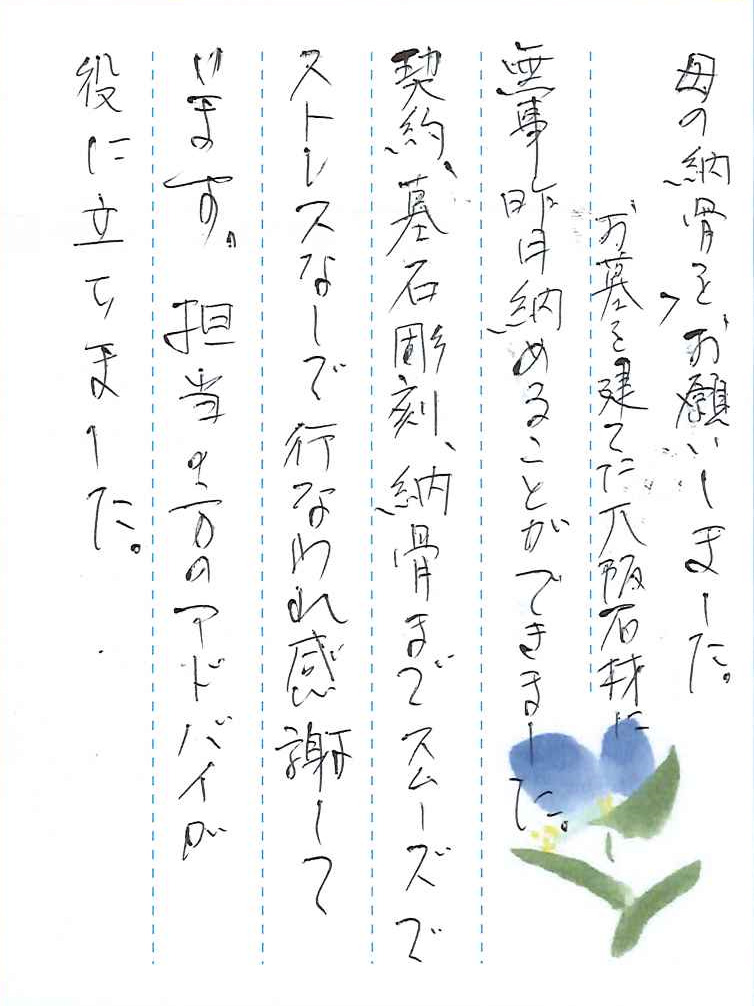 母の納骨をお願いしました。
お墓を建てた大阪石材に
無事昨日納めることができました。
契約、墓石彫刻、納骨までスムーズで
ストレスなしで行なわれ感謝して
います。 担当の方のアドバイが
役に立ちました。